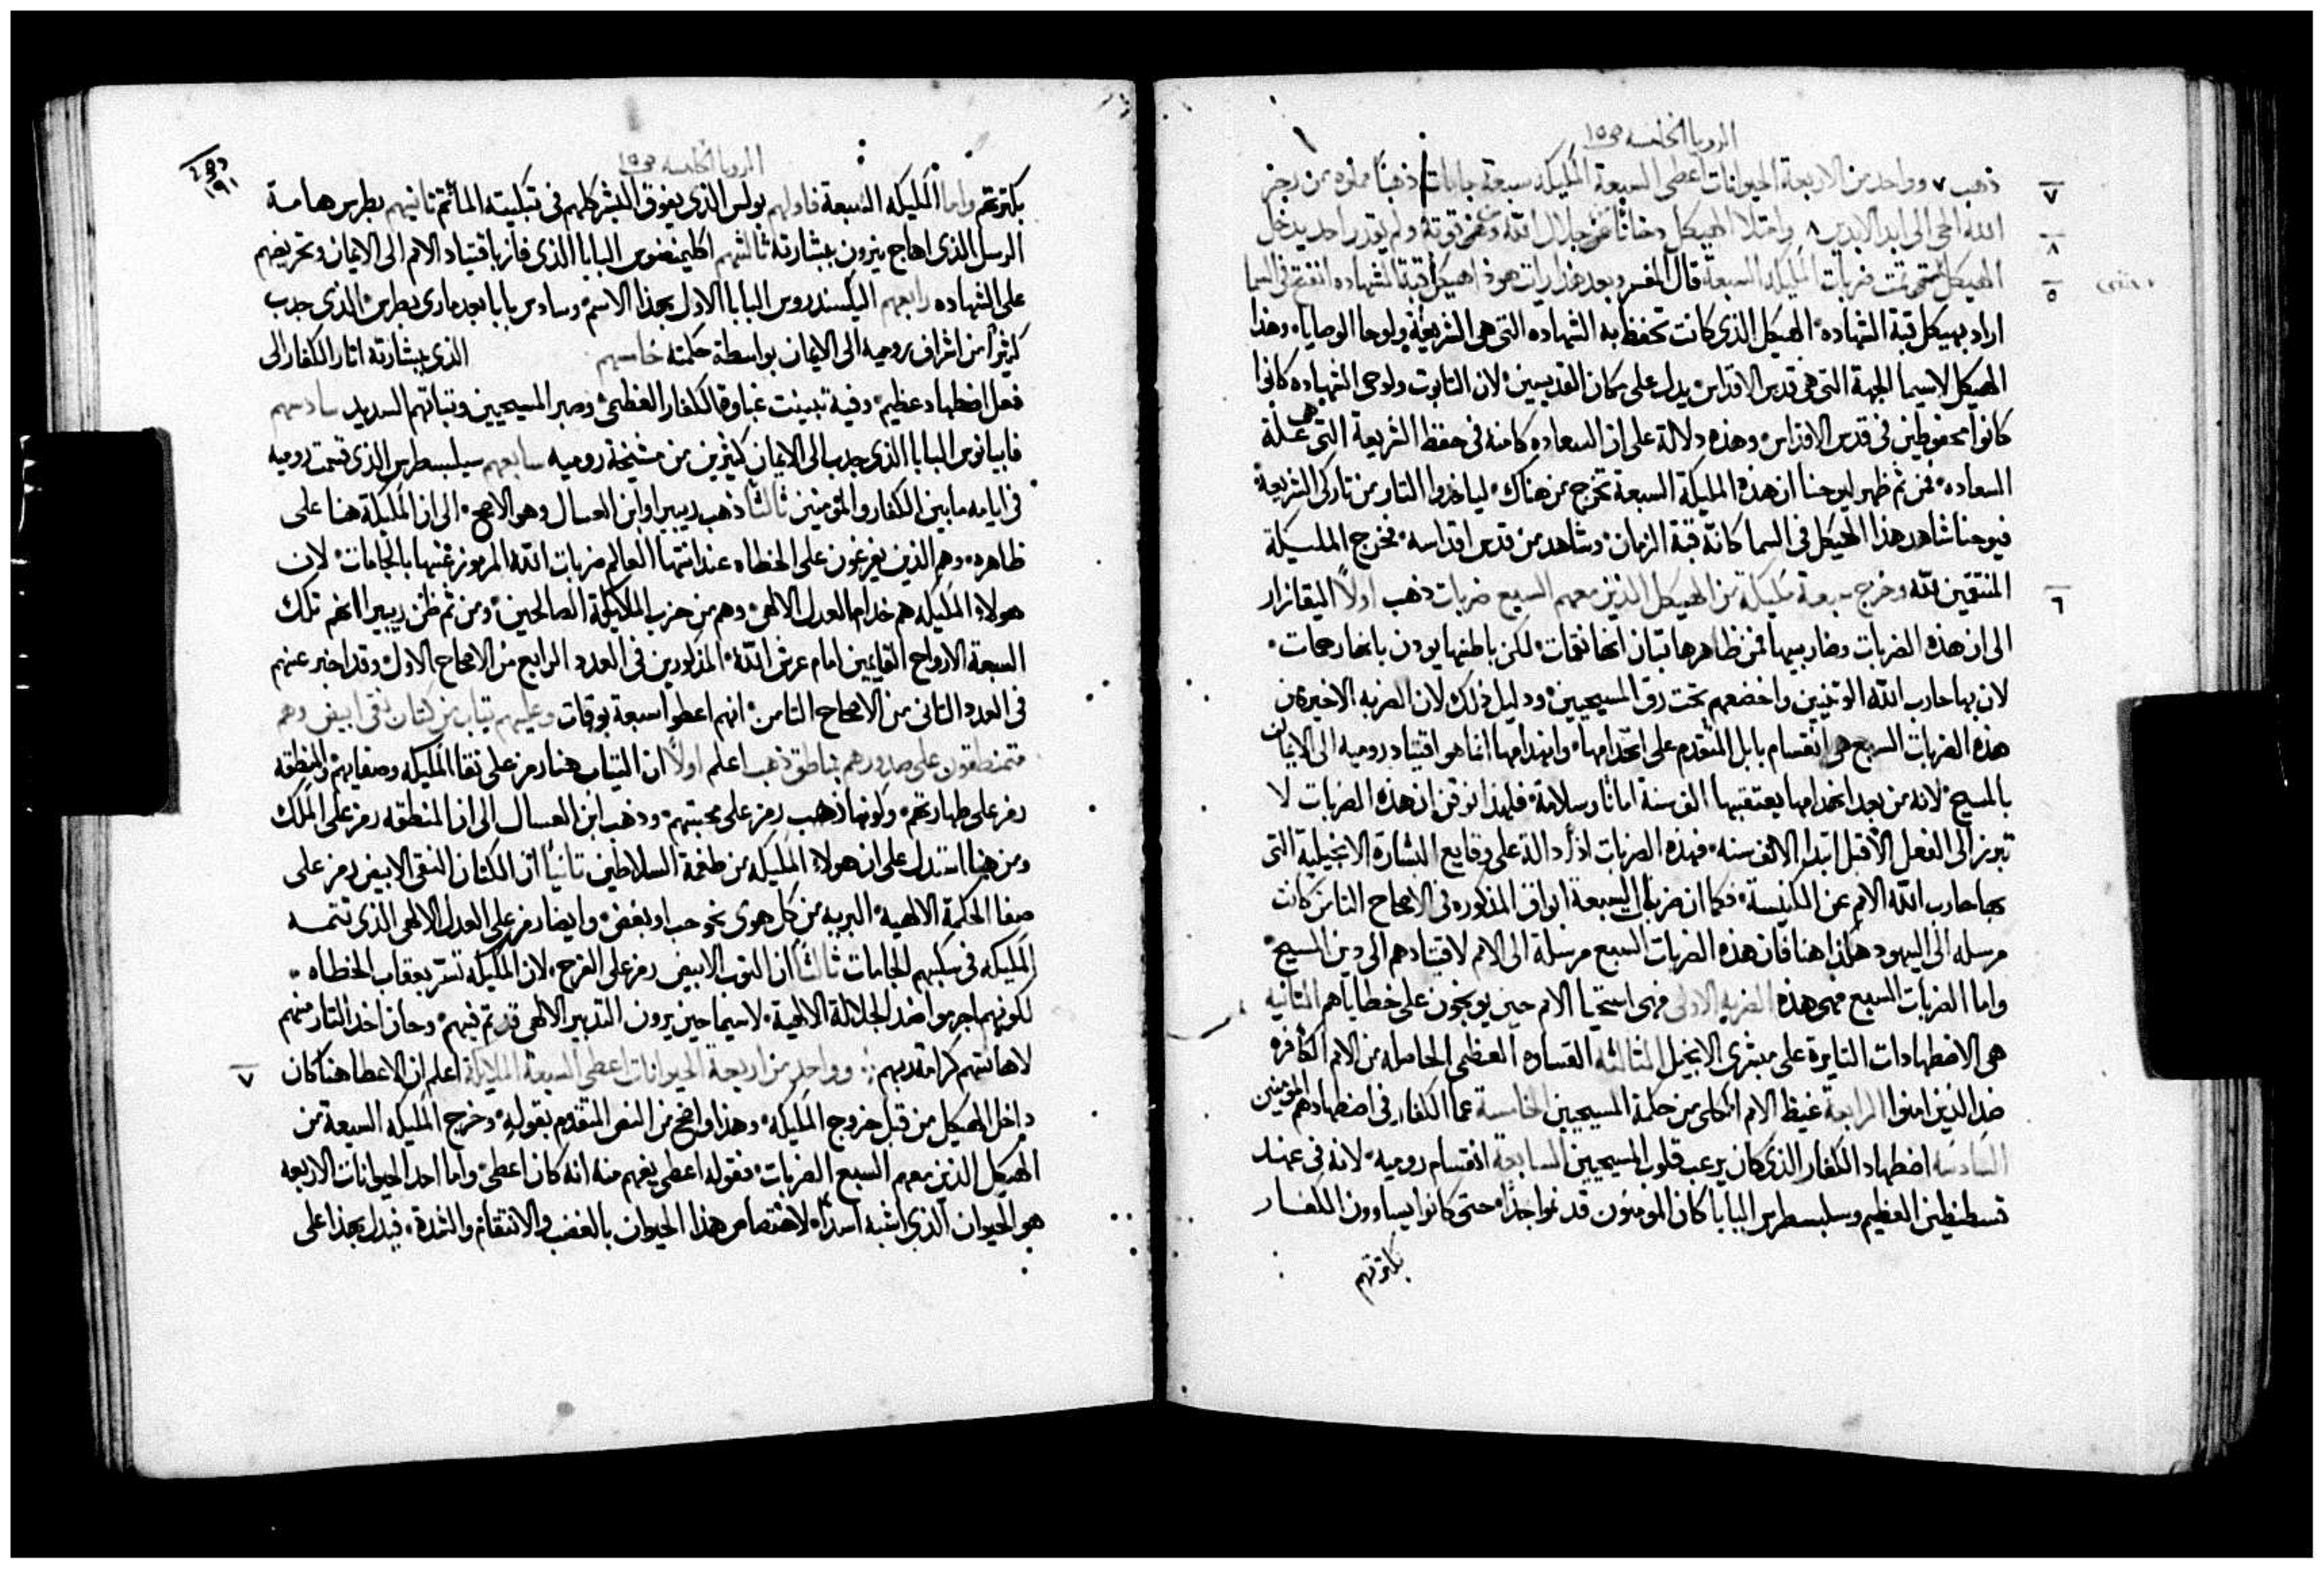 الرويا الخامسه ص١٥
ذهب ٧ وواحد من الاربعة الحيوانات اعطى السبعة المليكه سبعة جامات ذهبًا مملوه من رجز
الله الحي الى ابد الابدين ٨ وامتلا الهيكل دخانًا من جلال الله وعن قوته ولم يقدر احد يدخل
الهيكل حتى تمت ضربات المليكه السبعة قال المفسر وبعد هذا رايت هوذا هيكل قبة الشهاده انفتح في السما
اراد بهيكل قبة الشهاده الهيكل الذي كانت تحفظ به الشهاده التي هي الشريعة ولوحا الوصايا وهذا
الهيكل لاسيما الجهة التي هي قدس الاقداس يدل على مكان القديسين لان التابوت ولوحى الشهاده كانوا
كانوا محفوظين في قدس الاقداس وهذه دلالة على ان السعاده كامنه في حفظ الشريعة التي هي علة
السعاده فمن ثم ظهر ليوحنا ان هذه المليكة السبعة تخرج من هناك لياخذوا التار من تاركى الشريعة
فيوحنا شاهد هذا الهيكل في السما كانّه قبة الزمان وشاهد من قدس اقداسه مخرج المليكة
المنتقمين لله وخرج سبعة مليكة من الهيكل الذين معهم السبع ضربات ذهب اولاً اليقازار
الى ان هذه الضربات وضاربيها فمن ظاهرها تبان انها نقمات لكن باطنها يودن بانها رحمات
لان بها حارب الله الوثنيين واخضعهم تحت رق المسيحيين ودليل ذلك لان الضربه الاخيره من
هذه الضربات السبع هي انقسام بابل المتقدم على انهدامها وانهدامها انما هو اقتياد روميه الى الايمان
بالمسيح لانه من بعد انهدامها يعتقبها الف سنة امانًا وسلامة فلهذا نوقن ان هذه الضربات لا
تبرز الى الفعل الا قبل ابتدا الالف سنه فهذه الضربات اذًا دالة على وقايع البشارة الانجيلية التي
بها حارب الله الامم عن الكنيسة فكما ان ضربات السبعة ابواق المذكوره في الاصحاح الثامن كانت
مرسله الى اليهود هكذا هنا فان هذه الضربات السبع مرسلة الى الامم لاقتيادهم الى دين المسيح
واما الضربات السبع فهى هذه الضربه الاولى فهي استحيا الامم حين يوبخون على خطاياهم الثانيه
هي الاضطهادات الثايرة على مبشرى الانجيل الثالثه القساوه العظمى الحاصله من الامم الكافره
ضد الذين امنوا الرابعة غيظ الامم الكلى من حكمة المسيحيين الخامسة عما الكفار في اضطهادهم المومنين
السادسه اضطهاد الكفار الذي كان يرعب قلوب المسيحيين السابعة انقسام روميه لانه في عهد
قسطنطين العظيم وسلبسطرس البابا كان المومنون قد نموا جدًا حتى كانوا يساوون الكفار
بكثرتهم
الرويا الخامسه ص١٥
١٩١
بكثرتهم واما المليكه السبعة فاولهم بولس الذي يفوق البشر كلهم في تبكيته المأثم ثانيهم بطرس هامة
الرسل الذي اهاج نيرون ببشارته ثالثهم اكليمنضوس البابا الذي فاز باقتياد الامم الى الايمان وتحريضهم
على الشهاده رابعهم اليكسندروس البابا الاول بهذا الاسم وسادس بابا بعد مارى بطرس الذي جذب
كثيرًا من اشراف روميه الى الايمان بواسطة حكمته خامسهم الذي ببشارته اثار الكفار الى
فعل اضطهاد عظيم وفية تبينت غباوة الكفار العظمى وصبر المسيحيين وثباتهم السديد سادسهم
فابيانوس البابا الذي جذب الى الايمان كثيرين من مشيخة روميه سابعهم سيلبسطرس الذي قسمت روميه
في ايامه ما بين الكفار والمؤمنين ثالثًا ذهب ريبيرا وابن العسال وهو الاصح الى ان المليكة هنا على
ظاهره وهم الذين يفرغون على الخطاه عند انتها العالم ضربات الله المرموز عنها بالجامات لان
هولاء المليكه هم خدام العدل الالهي وهم من حزب الملايكة الصالحين ومن ثم ظن ريبيرا انهم تلك
السبعة الارواح القايمين امام عرش الله المذكورين في العدد الرابع من الاصحاح الاول وقد اخبر عنهم
في العدد الثاني من الاصحاح الثامن انهم اعطوا سبعة بوقات وعليهم ثياب من كتان نقى ابيض وهم
متمنطقون على صدورهم بمناطق ذهب اعلم اولًا ان الثياب هنا رمز على نقا المليكه وصفايهم والمنطقه
رمز على طهارتهم ولونها ذهب رمز على محبتهم وذهب ابن العسال الى ان المنطقه رمز على الملك
ومن هنا استدل على ان هولاء المليكه من طغمة السلاطين ثانيًا ان الكتان النقى الابيض رمز على
صفا الحكمة الالهية البريه من كل هوى نحو حب او بغض وايضا رمز على العدل الالهي الذي تتممه
المليكه في سكبهم الجامات ثالثًا ان الثوب الابيض رمز على الفرح لان المليكه تسر بعقاب الخطاه
لكونهم اجرموا ضد الجلالة الالهية لاسيما حين يرون التدبير الالهي قد تم فيهم وحان اخذ الثار منهم
لاهانتهم كرامة ربهم وواحد من اربعة الحيوانات اعطى السبعة الملايكة اعلم ان الاعطا هنا كان
داخل الهيكل من قبل خروج المليكه وهذا واضح من النص المتقدم بقوله وخرج المليكه السبعة من
الهيكل الذين معهم السبع الضربات فقوله اعطى يفهم منه انه كان اعطى واما احد الحيوانات الاربعه
هو الحيوان الذي اشبه اسدًا لاختصاص هذا الحيوان بالغضب والانتقام والشدة فيدل بهذا على